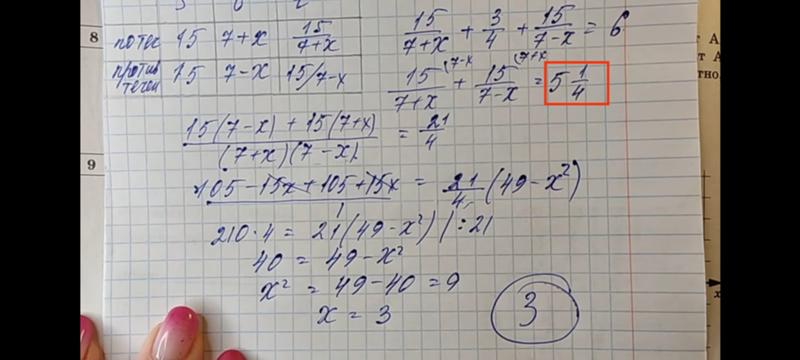 8
по теч 15 7+x 15/7+x
против течен 15 7-x 15/7-x
15/7+x + 3/4 + 15/7-x = 6
15/7+x (7-x + 15/7-x (7+x = 5 1/4
15(7-x) + 15(7+x)/(7+x)(7-x) = 21/4
9
105-15x+105+15x/1 = 21/4 (49-x²)
210·4 = 21(49-x²) |:21
40 = 49-x²
x² = 49-40 = 9
x = 3
3